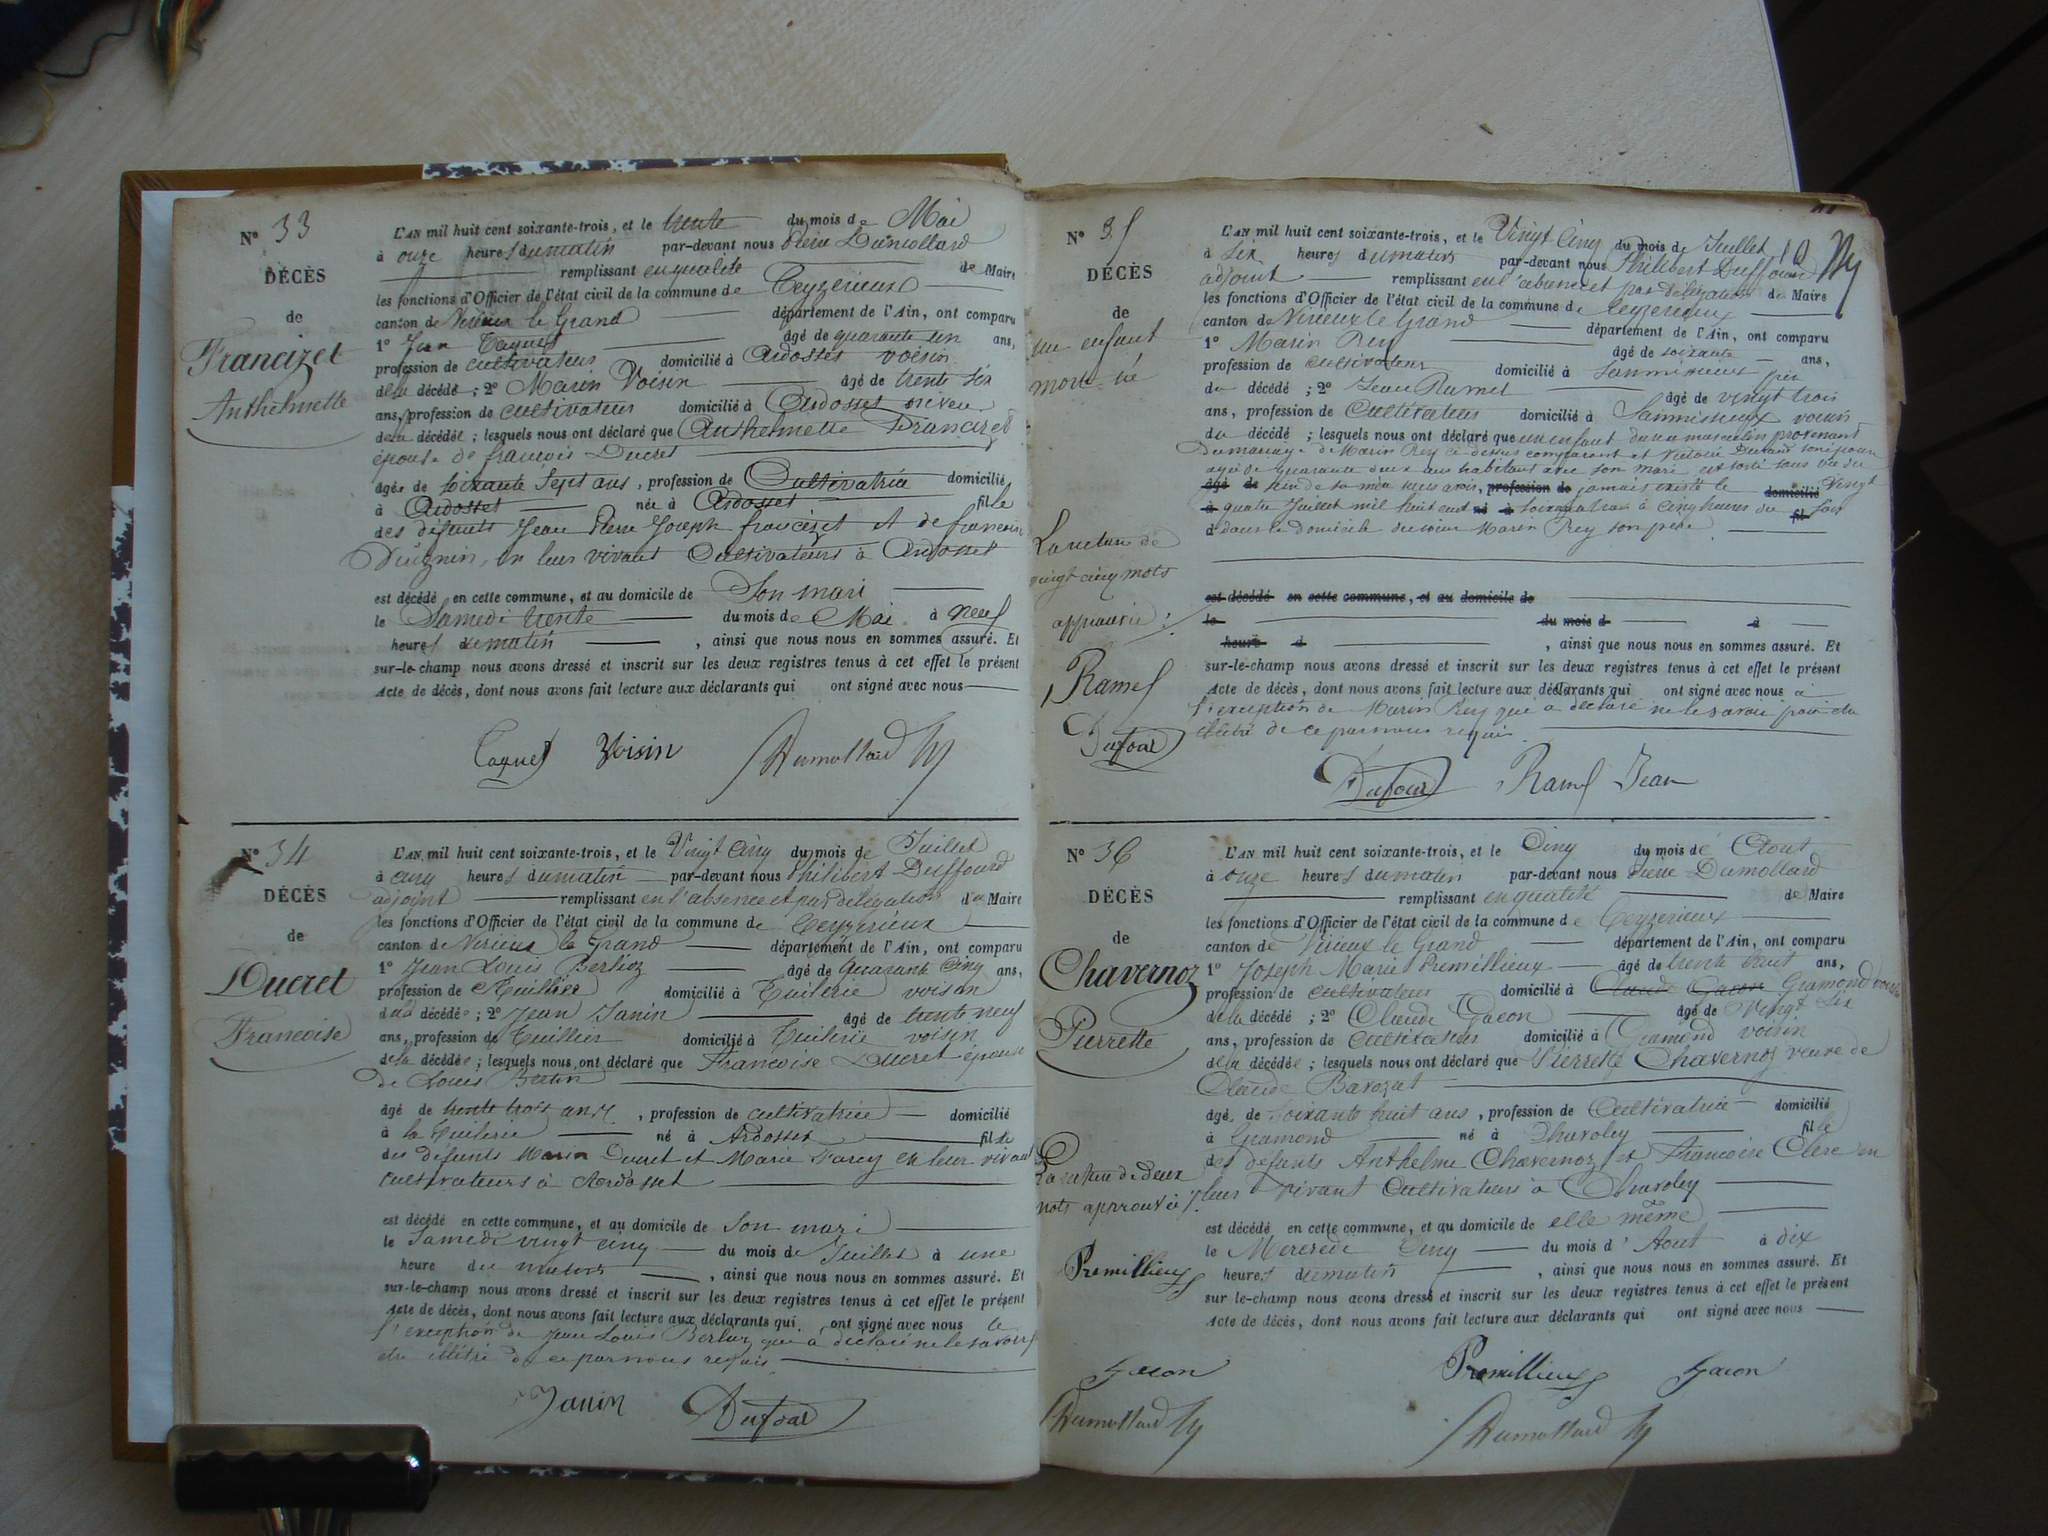 N° 33
DÉCÈS
de
Francizet
Anthelmette
L'AN mil huit cent soixante-trois, et le trente du mois de Mai
à onze heures du matin par-devant nous Pierre Dumollard
remplissant en qualité de Maire
les fonctions d'Officier de l'état civil de la commune de Ceyzerieux
canton de Virieux le Grand département de l'Ain, ont comparu
1° Jean Caquet âgé de quarante un ans,
profession de cultivateur domicilié à Ardosset voisin
de la décédé ; 2° Marin Voisin âgé de trente six
ans, profession de cultivateur domicilié à Ardosset neveu
de la décédée ; lesquels nous ont déclaré que Anthelmette Francizet
épouse de françois Ducret
âgée de soixante Sept ans, profession de Cultivatrice domicilié
à Ardosset née à Ardosset fille
des défunts Jean Pierre Joseph francizet et de françoise
en leur vivant Cultivateurs à Ardosset
est décédé en cette commune, et au domicile de Son mari
le Samedi trente du mois de Mai à neuf
heures du matin , ainsi que nous nous en sommes assuré. Et
sur-le-champ nous avons dressé et inscrit sur les deux registres tenus à cet effet le présent
Acte de décès, dont nous avons fait lecture aux déclarants qui ont signé avec nous
Caquet Voisin Dumollard
N° 34
DÉCÈS
de
Ducret
Francoise
L'AN mil huit cent soixante-trois, et le Vingt Cinq du mois de Juillet
à cinq heures du matin par-devant nous Philibert Duffourd
adjoint remplissant en l'absence et par délégation du Maire
les fonctions d'Officier de l'état civil de la commune de Ceyzerieux
canton de Virieux le Grand département de l'Ain, ont comparu
1° Jean Louis Berlioz âgé de quarante Cinq ans,
profession de Tuillier domicilié à Tuilerie voisin
de la décédée ; 2° Jean Janin âgé de trente neuf
ans, profession de Tuillier domicilié à Tuilerie voisin
de la décédée ; lesquels nous ont déclaré que Francoise Ducret épouse
de Louis
âgé de trente trois ans, profession de cultivatrice domicilié
à la Tuilerie né à Ardosset fille
des défunts Marin Ducret et Marie en leur vivant
cultivateurs à Ardosset
est décédé en cette commune, et au domicile de Son mari
le Samedi vingt cinq du mois de Juillet à une
heure du matin , ainsi que nous nous en sommes assuré. Et
sur-le-champ nous avons dressé et inscrit sur les deux registres tenus à cet effet le présent
Acte de décès, dont nous avons fait lecture aux déclarants qui ont signé avec nous
l'exception de Jean Louis Berlioz qui a déclaré ne le savoir
de ce par nous requis
Janin Dufour
N° 35
DÉCÈS
de
un enfant
mort né
La rature de
vingt cinq mots
approuvée
Ramel
Dufour
L'AN mil huit cent soixante-trois, et le Vingt Cinq du mois de Juillet
à six heures du matin par-devant nous Philibert Duffourd
adjoint remplissant en l'absence et par délégation du Maire
les fonctions d'Officier de l'état civil de la commune de Ceyzerieux
canton de Virieux le Grand département de l'Ain, ont comparu
1° Marin Rey âgé de soixante ans,
profession de cultivateur domicilié à père
du décédé ; 2° Jean Ramel âgé de vingt trois
ans, profession de Cultivateur domicilié à voisin
du décédé ; lesquels nous ont déclaré que un enfant du sexe masculin provenant
du mariage de Marin Rey ci dessus comparant et son épouse
agée de quarante deux ans habitant avec son mari est sorti sans vie du
âgé de sein de sa mère profession de jamais existé le domicilié Vingt
à quatre Juillet mil huit cent né à soixante trois à Cinq heures du fil soir
dans le domicile du sieur Marin Rey son père
est décédé en cette commune, et au domicile de
le du mois d à
heure d , ainsi que nous nous en sommes assuré. Et
sur-le-champ nous avons dressé et inscrit sur les deux registres tenus à cet effet le présent
Acte de décès, dont nous avons fait lecture aux déclarants qui ont signé avec nous à
l'exception de Marin Rey qui a déclaré ne le savoir
de ce par nous requis
Dufour Ramel Jean
N° 36
DÉCÈS
de
Chavernoz
Pierrette
La rature de deux
mots approuvée
Premillieux
Gacon
Dumollard
L'AN mil huit cent soixante-trois, et le Cinq du mois de Aout
à onze heures du matin par-devant nous Pierre Dumollard
remplissant en qualité de Maire
les fonctions d'Officier de l'état civil de la commune de Ceyzerieux
canton de Virieux le Grand département de l'Ain, ont comparu
1° Joseph Marie Premillieux âgé de trente huit ans,
profession de cultivateur domicilié à Claude Gacon Gramond voisin
de la décédé ; 2° Claude Gacon âgé de Vingt Six
ans, profession de Cultivateur domicilié à Gramond voisin
de la décédée ; lesquels nous ont déclaré que Pierrette Chavernoz veuve de
Claude Bavozat
âgée de soixante huit ans, profession de Cultivatrice domicilié
à Gramond né à Chavoley fille
des défunts Anthelme Chavernoz et Francoise Clerc en
leur vivant Cultivateurs à Chavoley
est décédé en cette commune, et au domicile de elle même
le Mercredi Cinq du mois d'Aout à dix
heures du matin , ainsi que nous nous en sommes assuré. Et
sur le-champ nous avons dressé et inscrit sur les deux registres tenus à cet effet le présent
Acte de décès, dont nous avons fait lecture aux déclarants qui ont signé avec nous
Premillieux Gacon
Dumollard